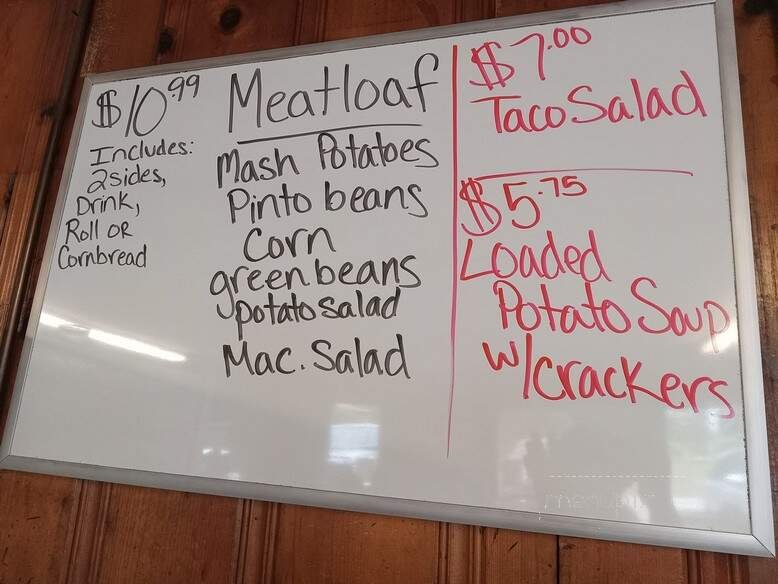 $10.99
Includes:
2sides,
Drink,
Roll OR
Cornbread
Meatloaf
Mash Potatoes
Pinto beans
Corn
green beans
potato salad
Mac. Salad
$7.00
Taco Salad
$5.75
Loaded
Potato Soup
w/crackers